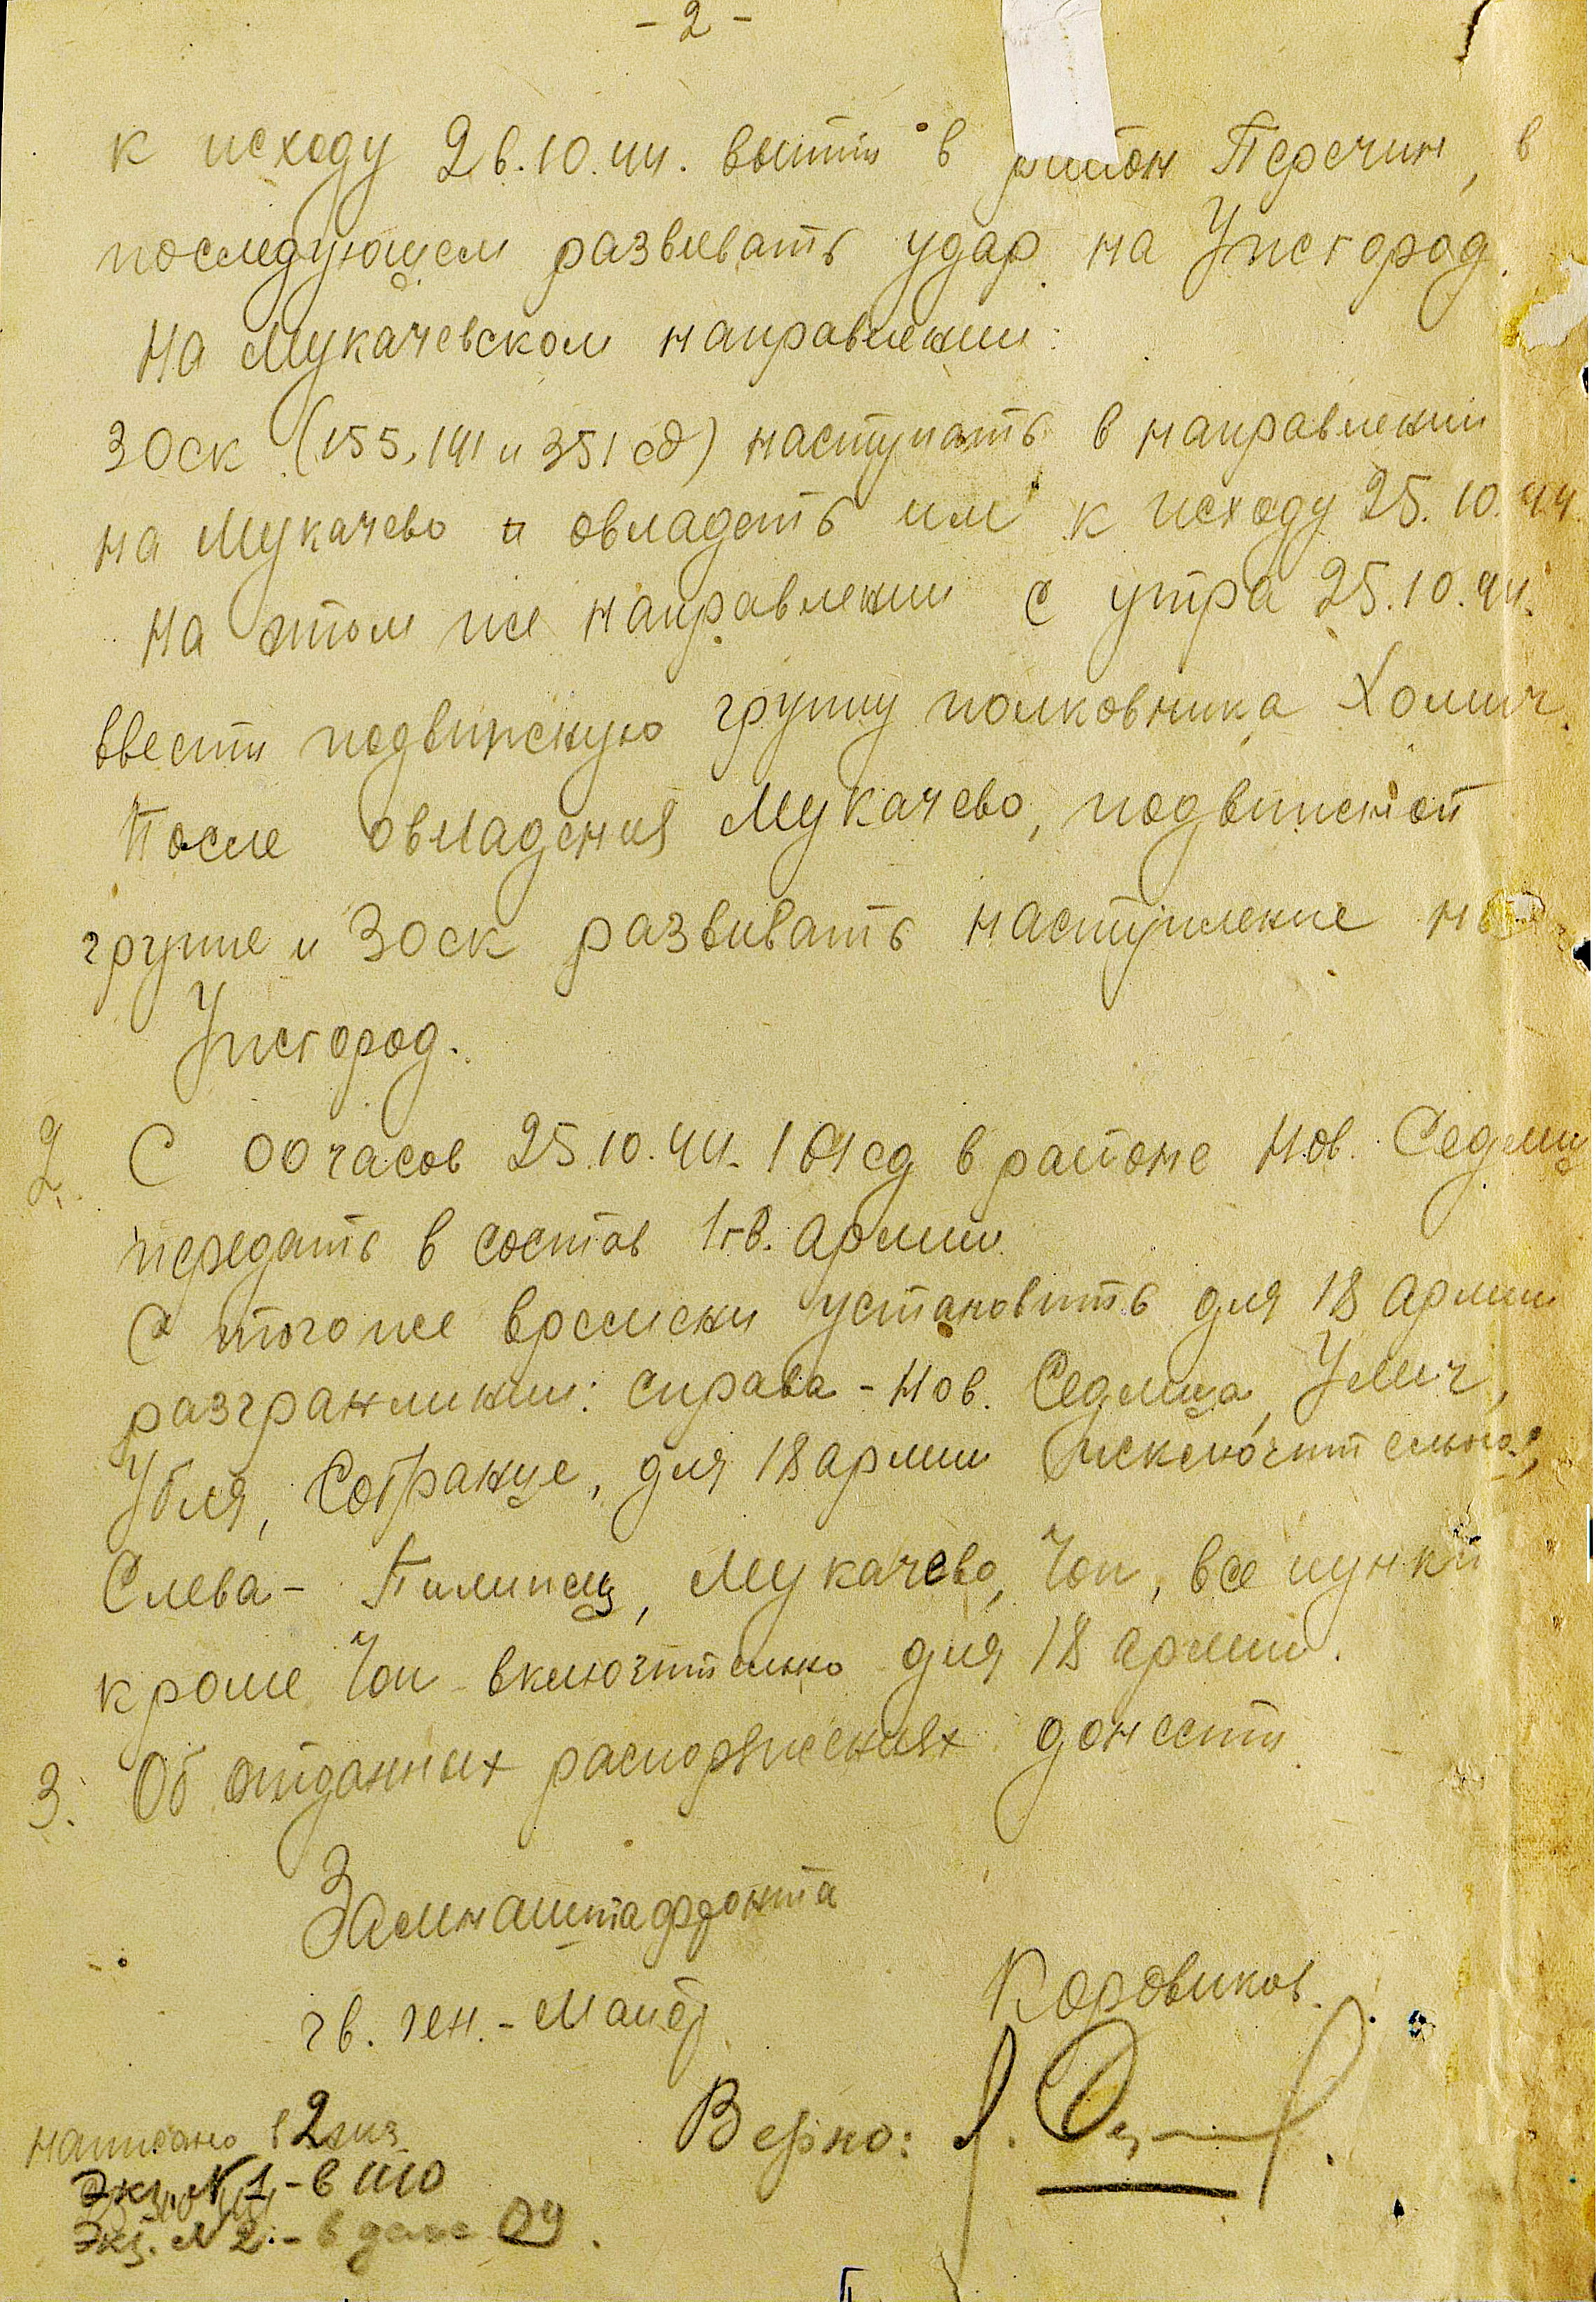 - 2 -
к исходу 26.10.44. выйти в район Перечин, в
последующем развивать удар на Ужгород.
На Мукачевском направлении:
30ск (155, 141 и 351 сд) наступать в направлении
на Мукачево и овладеть им к исходу 25.10.44
На этом же направлении с утра 25.10.44.
ввести подвижную группу полковника Хомич.
После овладения Мукачево, подвижной
группе и 30ск развивать наступление на
Ужгород.
2. С 00 часов 25.10.44. 161 сд в районе Нов. Седлица
передать в состав 1 гв. армии.
С того же времени установить для 18 армии
разгранлинии: справа - Нов. Седлица, Улич,
Убля, Собранце, для 18 армии исключительно;
Слева - Пилипец, Мукачево, Чоп, все пункты
кроме Чоп включительно для 18 армии.
3. Об отданных распоряжениях донести
Замнаштафронта
гв. ген. - майор Коровиков.
Верно:
Написано в 2 экз
Экз. №1 - в ШО
Экз. №2. - в деле ОУ.